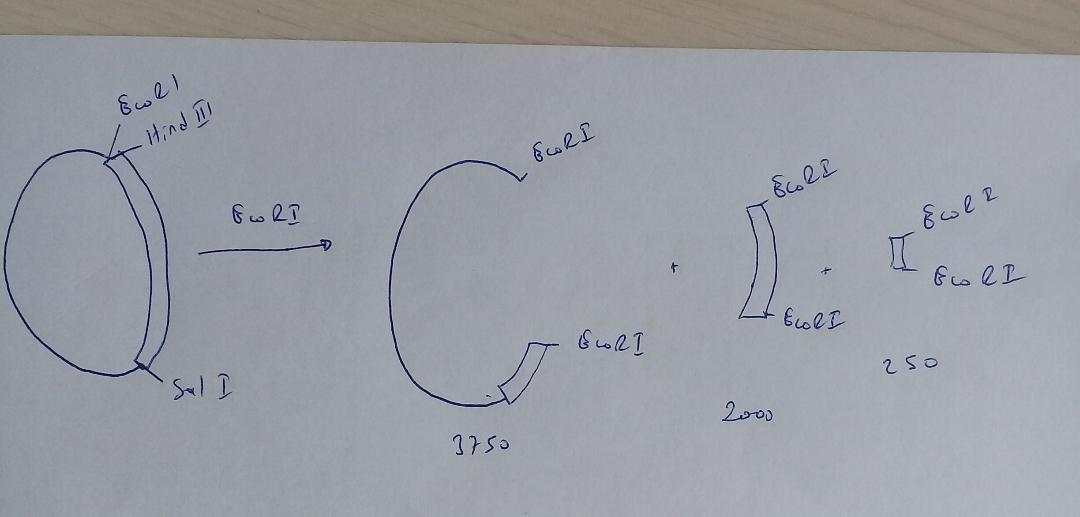 EcoRI
Hind III
Sal I
EcoRI
EcoRI
EcoRI
3750
+
EcoRI
EcoRI
2000
+
EcoRI
EcoRI
250